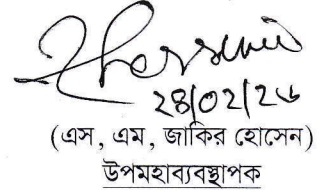 ২৪/০২/২৬
(এস, এম, জাকির হোসেন)
উপমহাব্যবস্থাপক